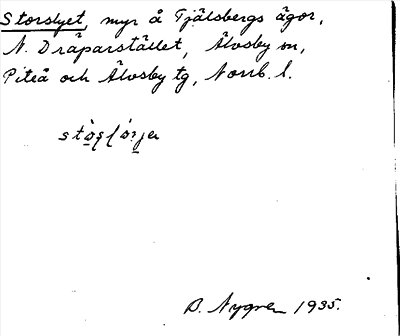 Storslyet, myr å Tjälsbergs ägor,
N. Dråparstället, Älvsby sn,
Piteå och Älvsby tg, Norrb. l.
B. Nygren 1935.